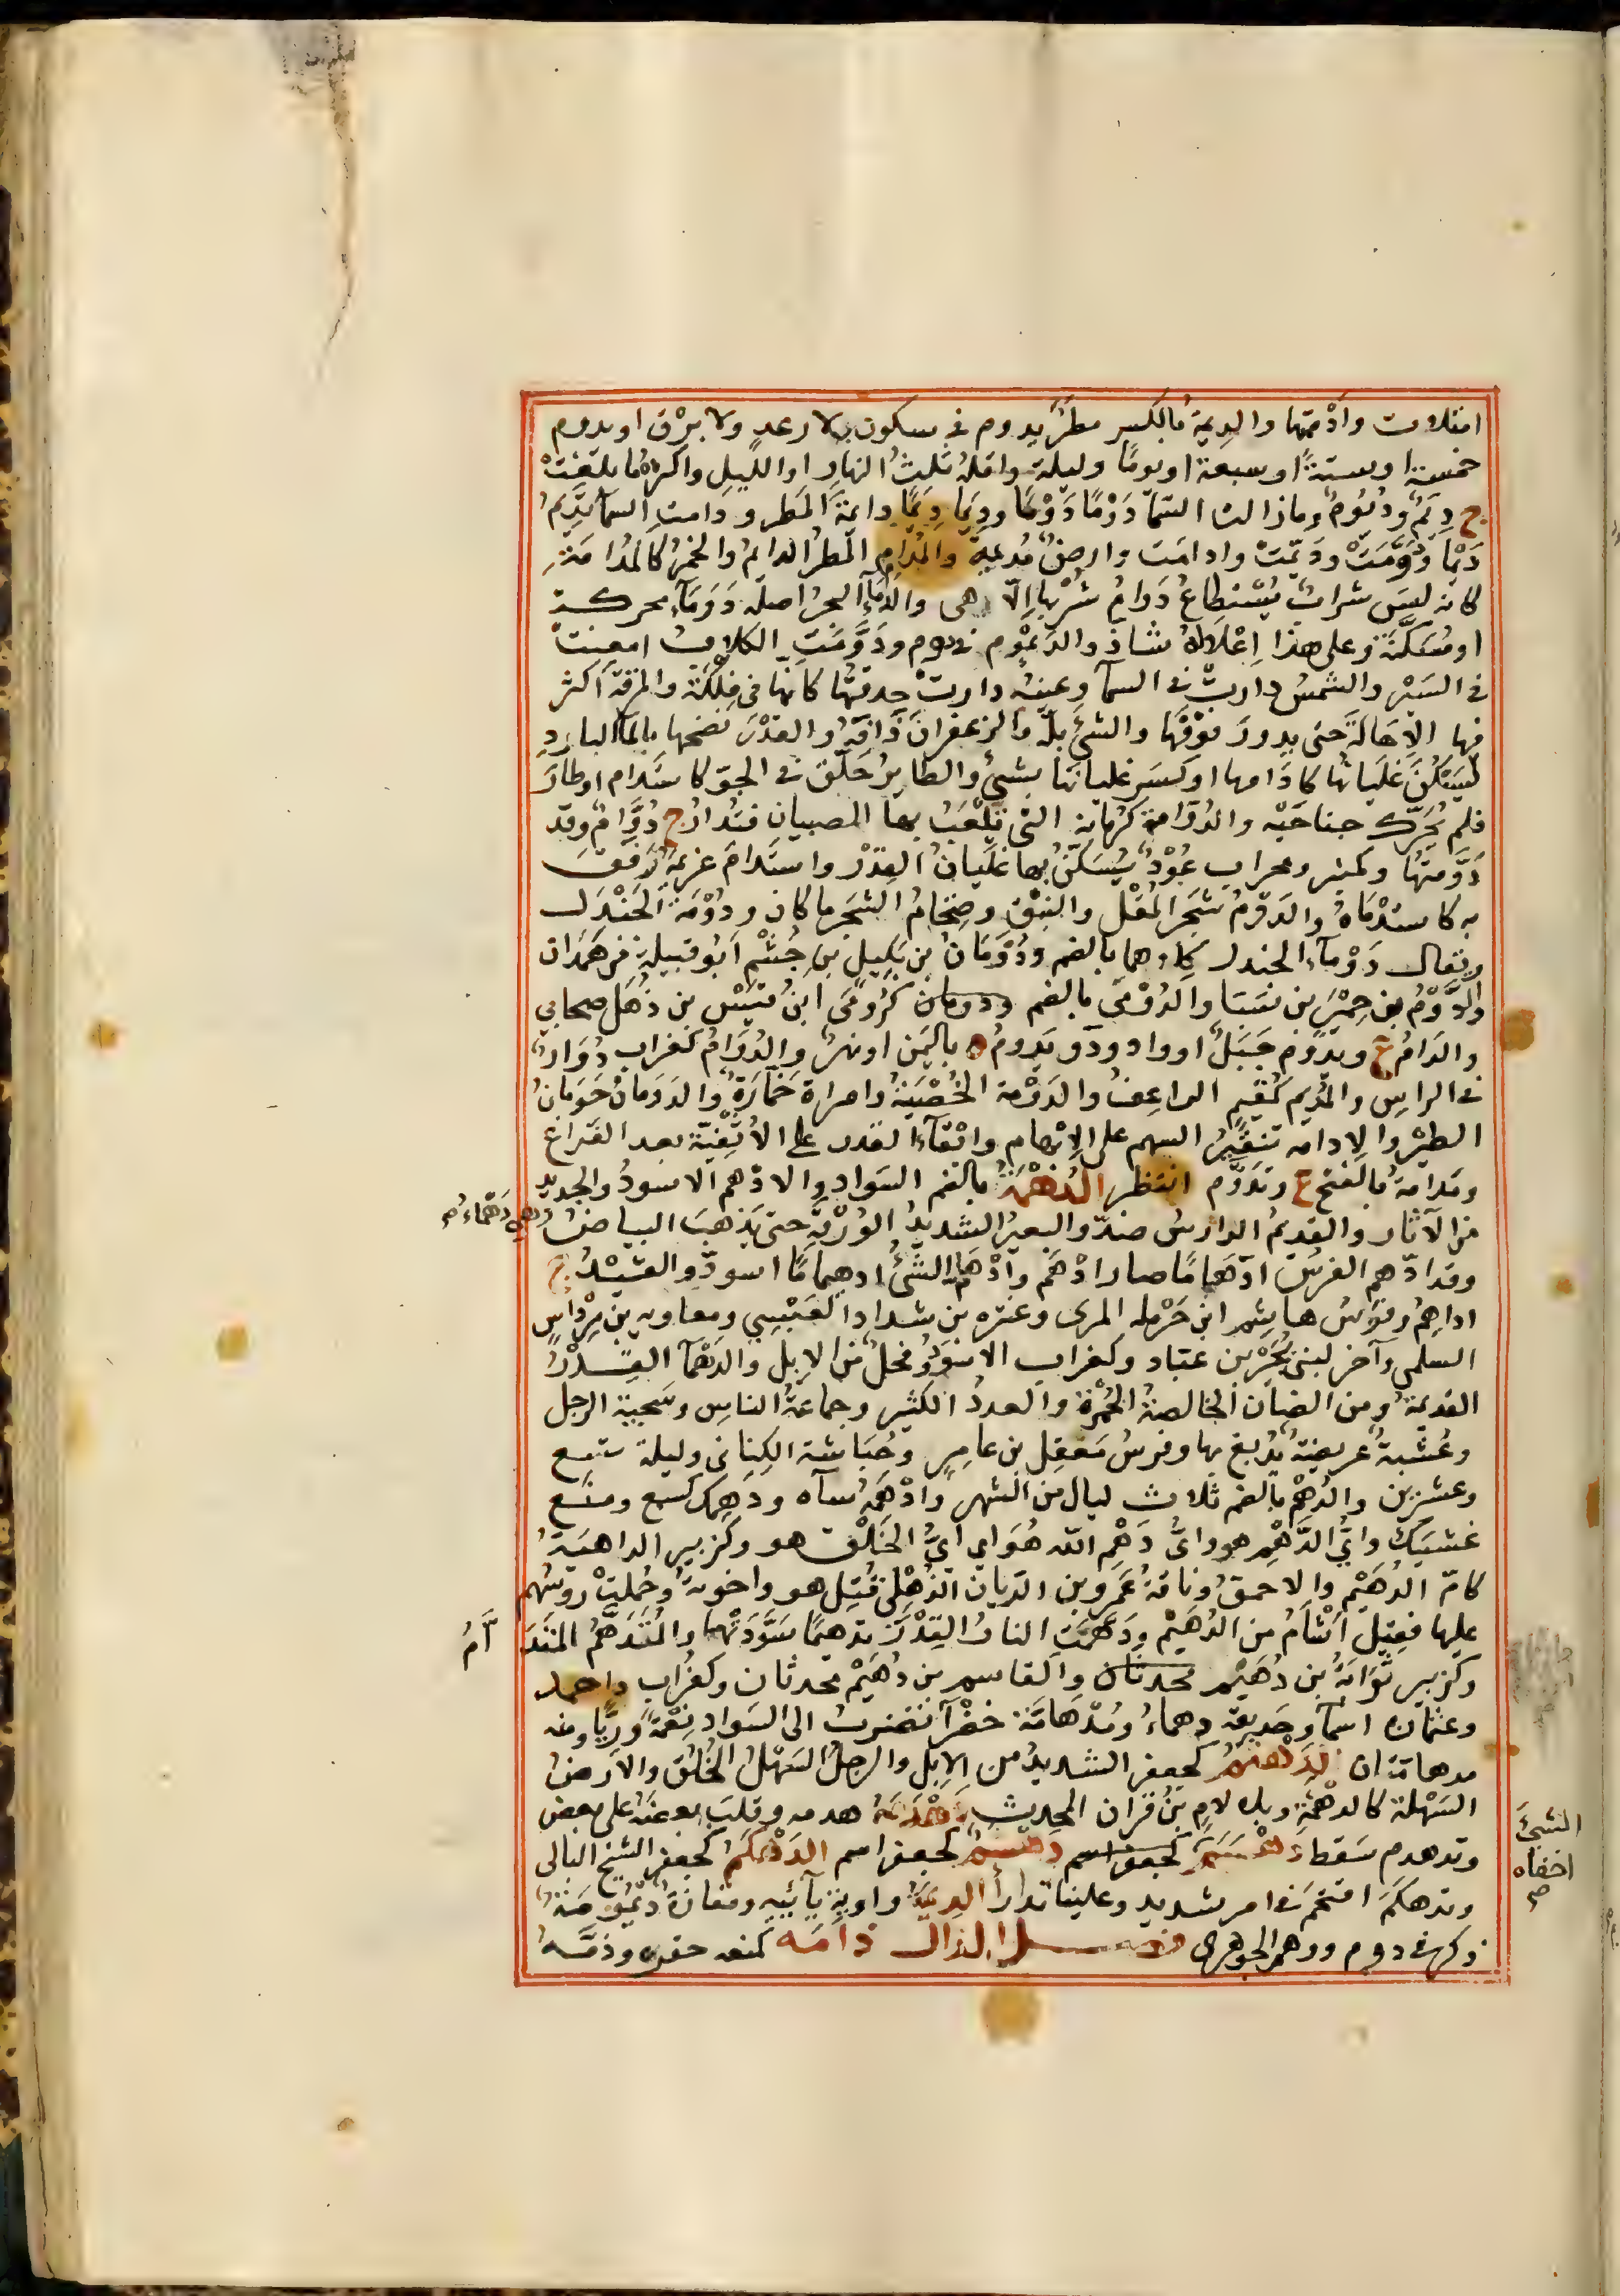 امتلات وأدمتها والديمة بالكسر مطر يدوم في سكون بلا رعد ولا برق او يدوم
خمسة او ستة او سبعة او يوما وليلة واقله ثلث النهار او الليل واكثره ما بلغت
ج ديم وديوم وما زالت السما دوما دوما وديما ديما دايمة المطر ودامت السما تديم
ديما ودومت وديمت وادامت وارض مديمة والمدام المطر الدايم والخمر كالمدامة
لانه ليس شراب يستطاع دوام شربها الا هى والداماء البحر اصله دوماء محركة
او مسكنة وعلى هذا اعلاله شاذ والديموم في دوم ودومت الكلاب امعنت
في السير والشمس دارت في السما وعينه دارت حدقتها كانها في فلكة والمرقة اكثر
فيها الاهالة حتى يدور فوقها والشئ بله والزعفران ذافه والقدر نضحها بالما البارد
ليسكن غليانها كادامها او كسر غليانها بشئ والطاير حلق في الجو كاستدام او طار
فلم يحرك جناحيه والدوامة كرمانة التى يلعب بها الصبيان فتدار ج دوام وقد
دومتها وكمنبر ومحراب عود يسكن بها غليان القدر واستدام غريمه رفق
به كاستدماه والدوم شجر المقل والنبق وضخام الشجر ما كان ودومة الجندل
ويقال دوماء الجندل كلاهما بالضم ودومان بن بكيل بن جشم ابو قبيلة من همدان
والدوم بن حمير بن سبا والدومى بالضم كرومى ابن قيس بن ذهل صحابي
والدام ع ويدوم جبل او واد وذو يدوم ه باليمن او نهر والدوام كغراب دوار
في الراس والمديم كمقيم الراعف والدومة الخصية وامراة خمارة والدومان حومان
الطير والادامه تنقير السهم على الابهام وابقاء القدر على الاثفية بعد الفراغ
ومدامة بالفتح ع وتدوم انتظر الدهمة بالضم السواد والادهم الاسود والجديد
من الآثار والقديم الدارس ضد والبعير الشديد الورقة حتى يذهب البياض وهي دهماء صح
وقد ادهم الفرس ادهماما صار ادهم وادهام الشئ ادهيماما اسود والقيد ج
اداهم وفرس هاشم ابن حرمله المرى وعنتره بن شداد العبسي ومعاويه بن مرداس
السلمي وآخر لبنى بجير بن عباد وكغراب الاسود وفحل من الابل والدهماء القدر
القديمة ومن الضان الخالصة الحمرة والعدد الكثير وجماعة الناس وسحنة الرجل
وعشبة عريضة يدبغ بها وفرس معقل بن عامر وحباشة الكنانى وليلة تسع
وعشرين والدهم بالضم ثلاث ليال من الشهر وادهمه سآه ودهمك كسمع ومنع
غشيك واي الدهم هو واى دهم الله هو اي اي الخلق هو وكزبير الداهية
كام الدهيم والاحمق وناقة عمرو بن الريان الذهلى قتل هو واخوته وحملت روسهم
عليها فقيل اشأم من الدهيم ودهمت النار القدر تدهيما سودتها والمتدهم المتدأم
وكزبير ثوابة بن دهيم محدثان والقاسم بن دهيم محدثان وكغراب واحمد
وعثمان اسما وحديقة دهماء ومدهامة خضرا تضرب الى السواد نعمة وريا ومنه
مدهامتان الدهثم كجعفر الشديد من الابل والرجل السهل الخلق والارض
السهلة كالدهثمة وبلا لام بن قران المحدث دهدمه هدمه وقلب بعضه على بعض
وتدهدم سقط دهسم كجعفر اسم دهشم كجعفر اسم الدهكم كجعفر الشيخ البالى
وتدهكم اقتحم في امر شديد وعلينا تدارأ الديمة واوية يائية ومفازة ديمومة
ذكر في دوم ووهم الجوهرى فصل الذال ذامه كمنعه حقره وذمه
الشئ
اخفاه
صح